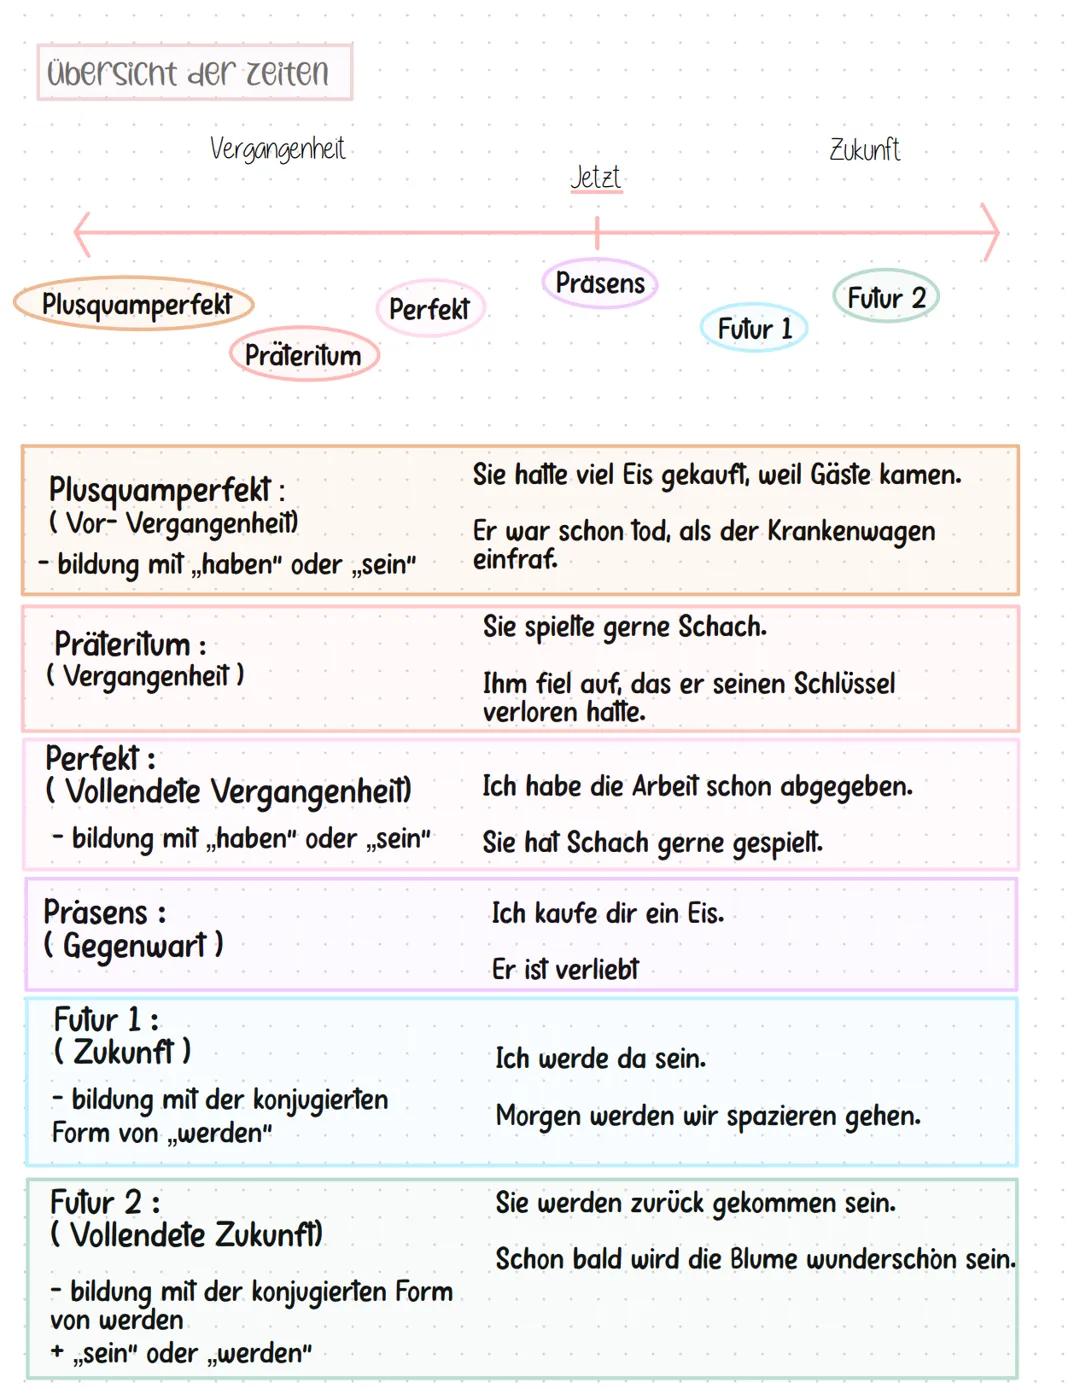 Übersicht der Zeiten
Vergangenheit
Zukunft
Jetzt
Präsens
Plusquamperfekt
Perfekt
Futur 2
Futur 1
Präteritum
Plusquamperfekt :
( Vor- Vergangenheit)
- bildung mit „haben" oder „sein"
Sie hatte viel Eis gekauft, weil Gäste kamen.
Er war schon tod, als der Krankenwagen
einfraf.
Präteritum :
( Vergangenheit )
Sie spielte gerne Schach.
Ihm fiel auf, das er seinen Schlüssel
verloren hatte.
Perfekt :
( Vollendete Vergangenheit)
- bildung mit „haben" oder „sein"
Ich habe die Arbeit schon abgegeben.
Sie hat Schach gerne gespielt.
Präsens :
( Gegenwart )
Ich kaufe dir ein Eis.
Er ist verliebt
Futur 1 :
( Zukunft )
- bildung mit der konjugierten
Form von „werden"
Ich werde da sein.
Morgen werden wir spazieren gehen.
Futur 2 :
( Vollendete Zukunft)
- bildung mit der konjugierten Form
von werden
+ „sein" oder „werden"
Sie werden zurück gekommen sein.
Schon bald wird die Blume wunderschön sein.